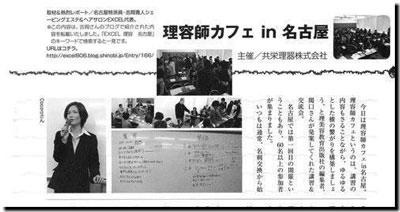 取材&執筆レポート／名古屋特派員・吉岡貴人シェービングエステ&ヘアサロンEXCEL代表。
本この内容は、吉岡さんのブログで紹介された内容を転載いたしました。「EXCEL 理容 名古屋」
のキーワードで検索すると一発です。
URLはコチラ。
http://excel808.blog.shinobi.jp/Entry/166/
理容師カフェ in 名古屋
主催／共栄理器株式会社
今日は理容師カフェin名古屋。
理容師カフェというのは、講習の
内容もさることながら、ゆるゆる
とした横の繋がりを構築しましょ
う、と理美容教育出版社の編集者、
関口さんが発案してくれた講習＆
交流会。
名古屋では第一回目の開催とい
うこともあり、60名以上の参加者
が集まりました。
いつもは通常、名刺交換から始